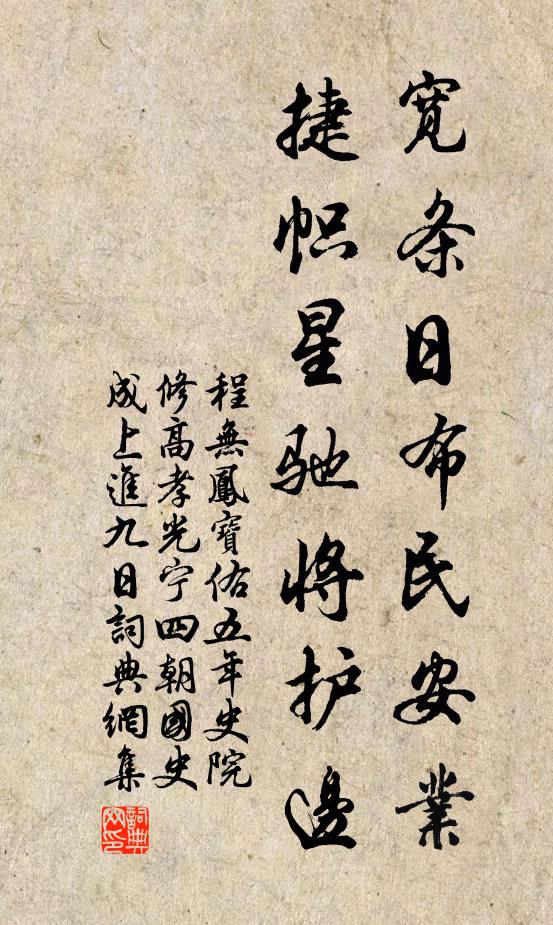 寛条日布民安業
捷帜星驰将护邊
程無鳳寶佑五年史院
修高孝光宁四朝國史
成上進九日詞典網集
詞典网印